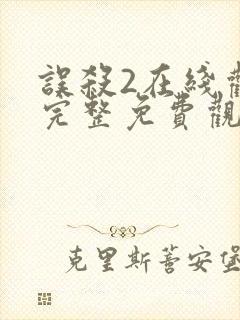 誤殺2在綫觀
完整免費觀
克里斯蒂安堡